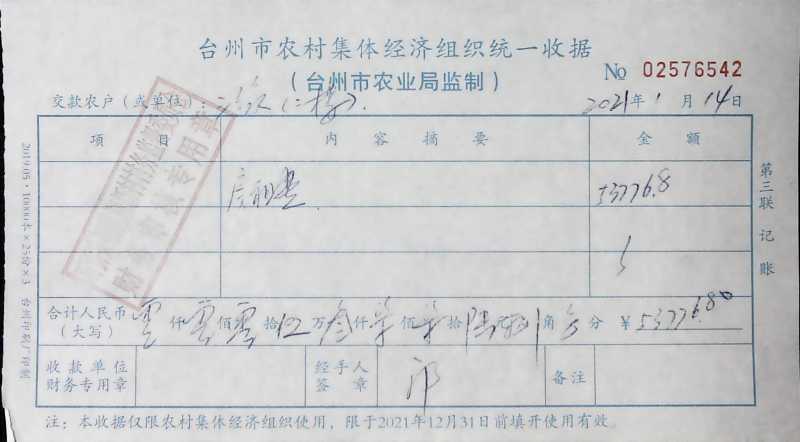 台州市农村集体经济组织统一收据
(台州市农业局监制)
№ 02576542
交款农户(或单位): (二楼).
2021年1月14日
项目 内容摘要 金额
房租费 53776.8
合计人民币(大写) 零仟零佰零拾伍万叁仟柒佰柒拾陆 捌角零分 ¥53776.80
收款单位财务专用章
经手人签章
备注
注:本收据仅限农村集体经济组织使用,限于2021年12月31日前填开使用有效。
第三联 记账
2019.05·10000本×25份×3 台州印刷厂印制
财务审核专用章